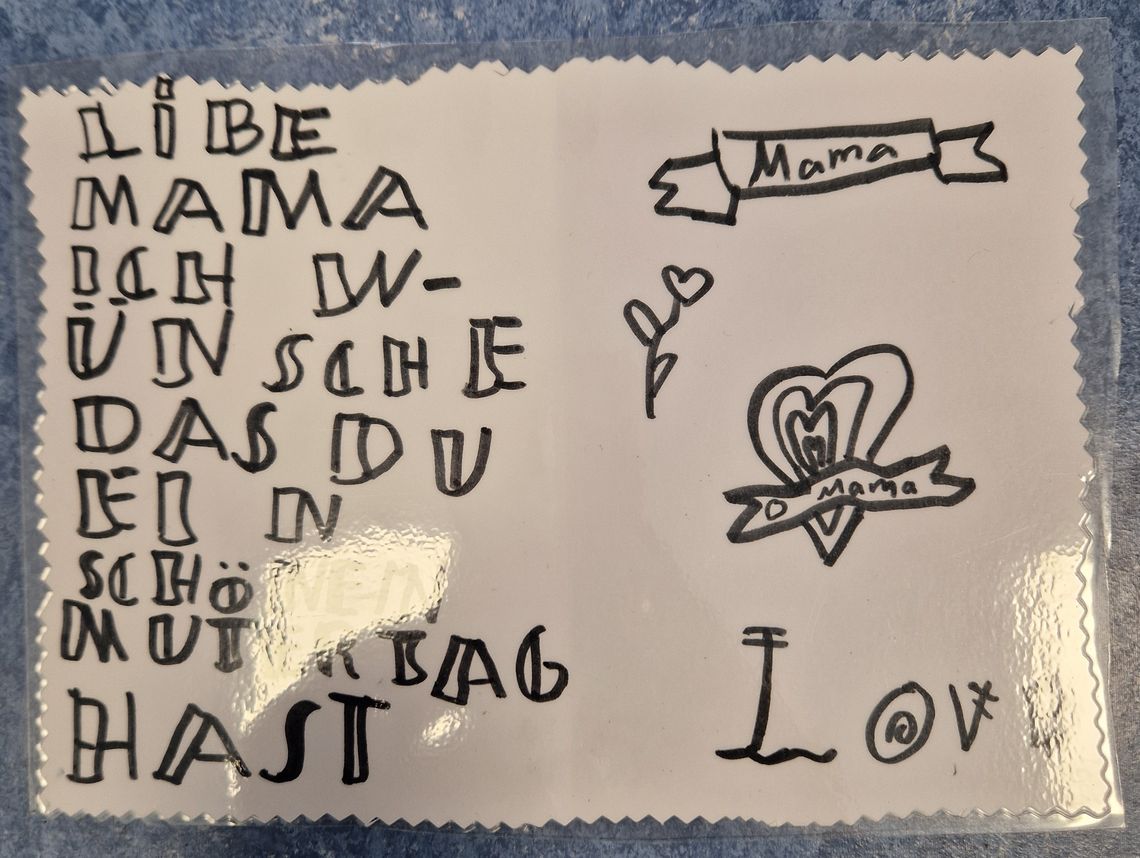 LIBE
MAMA
ICH W-
ÜNSCHE
DAS DU
EIN
SCHÖNEN
MUTERTAG
HAST
Mama
Mama
LOV